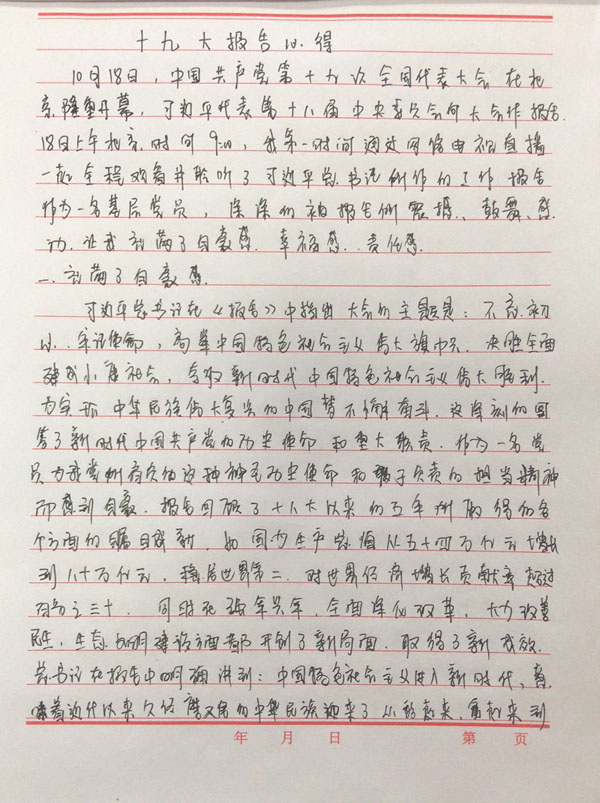 十九大报告心得
10月18日，中国共产党第十九次全国代表大会在北
京隆重开幕，习近平代表第十八届中央委员会向大会作报告.
18日上午北京时间9:00，我第一时间通过网络电视直播
一起全程观看并聆听了习近平总书记所作的工作报告
作为一名基层党员，深深的被报告所震撼、鼓舞、感
动.让我充满了自豪感.幸福感.责任感.
一.充满了自豪感.
习近平总书记在《报告》中指出大会的主题是：不忘初
心.牢记使命，高举中国特色社会主义伟大旗帜.决胜全面
建成小康社会，夺取新时代中国特色社会主义伟大胜利.
为实现中华民族伟大复兴的中国梦不懈奋斗.这深刻的回
答了新时代中国共产党的历史使命和重大职责.作为一名党
员为我党所肩负的这种神圣历史使命和敢于负责的担当精神
而感到自豪.报告回顾了十八大以来的五年所取得的各
个方面的瞩目成就，如国内生产总值从五十四万亿元增长
到八十万亿元，稳居世界第二.对世界经济增长贡献率超过
百分之三十.同时在强军兴军.全面深化改革，大力改善
民生，生态文明建设方面都开创了新局面.取得了新成效.
总书记在报告中明确讲到：中国特色社会主义进入新时代，意
味着近代以来久经磨难的中华民族迎来了从站起来.富起来到
年 月 日 第 页